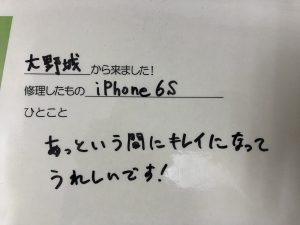 大野城 から来ました!
修理したもの iPhone 6S
ひとこと
あっという間にキレイになって
うれしいです!